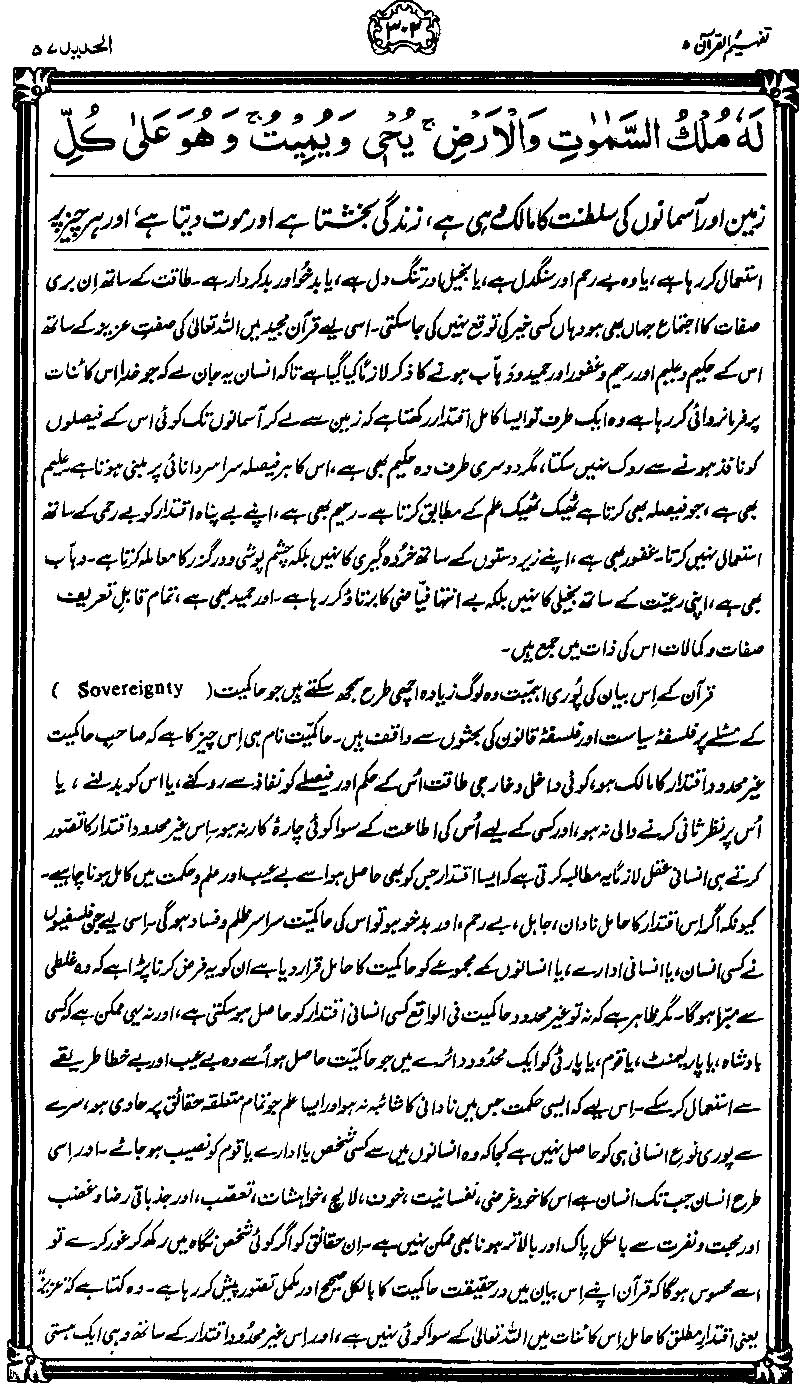 تفہیم القرآن ۵
۳۰۲
الحدید ۵۷
لَهٗ مُلْكُ السَّمٰوٰتِ وَالْاَرْضِ ۚ يُحْيٖ وَيُمِيْتُ ۚ وَهُوَ عَلٰى كُلِّ
زمین اور آسمانوں کی سلطنت کا مالک وہی ہے، زندگی بخشتا ہے اور موت دیتا ہے، اور ہر چیز پر
استعمال کر رہا ہے، یا وہ بے رحم اور سنگدل ہے، یا بخیل اور تنگ دل ہے، یا بدخو اور بدکردار ہے۔ طاقت کے ساتھ اِن بری
صفات کا اجتماع جہاں بھی ہو وہاں کسی خیر کی توقع نہیں کی جا سکتی۔ اسی لیے قرآن مجید میں اللہ تعالیٰ کی صفتِ عزیز کے ساتھ
اس کے حکیم و علیم اور رحیم و غفور اور حمید و وہّاب ہونے کا ذکر لازماً کیا گیا ہے تاکہ انسان یہ جان لے کہ جو خدا اس کائنات
پر فرمانروائی کر رہا ہے وہ ایک طرف تو ایسا کامل اقتدار رکھتا ہے کہ زمین سے لے کر آسمانوں تک کوئی اس کے فیصلوں
کو نافذ ہونے سے روک نہیں سکتا، مگر دوسری طرف وہ حکیم بھی ہے، اس کا ہر فیصلہ سراسر دانائی پر مبنی ہوتا ہے۔ علیم
بھی ہے، جو فیصلہ بھی کرتا ہے ٹھیک ٹھیک علم کے مطابق کرتا ہے۔ رحیم بھی ہے، اپنے بے پناہ اقتدار کو بے رحمی کے ساتھ
استعمال نہیں کرتا۔ غفور بھی ہے، اپنے زیردستوں کے ساتھ خُردہ گیری کا نہیں بلکہ چشم پوشی و درگزر کا معاملہ کرتا ہے۔ وہاب
بھی ہے، اپنی رعیّت کے ساتھ بخیلی کا نہیں بلکہ بے انتہا فیّاضی کا برتاؤ کر رہا ہے۔ اور حمید بھی ہے، تمام قابلِ تعریف
صفات و کمالات اس کی ذات میں جمع ہیں۔
قرآن کے اِس بیان کی پُوری اہمیّت وہ لوگ زیادہ اچھی طرح سمجھ سکتے ہیں جو حاکمیت (Sovereignty)
کے مسئلے پر فلسفۂ سیاست اور فلسفۂ قانون کی بحثوں سے واقف ہیں۔ حاکمیّت نام ہی اِس چیز کا ہے کہ صاحبِ حاکمیت
غیر محدود اقتدار کا مالک ہو، کوئی داخلی و خارجی طاقت اُس کے حکم اور فیصلے کو نفاذ سے روکنے، یا اس کو بدلنے، یا
اُس پر نظر ثانی کرنے والی نہ ہو، اور کسی کے لیے اُس کی اطاعت کے سوا کوئی چارۂ کار نہ ہو۔ اِس غیر محدود اقتدار کا تصوّر
کرتے ہی انسانی عقل لازماً یہ مطالبہ کرتی ہے کہ ایسا اقتدار جس کو بھی حاصل ہو اسے بے عیب اور علم و حکمت میں کامل ہونا چاہیے۔
کیونکہ اگر اِس اقتدار کا حامل نادان، جاہل، بے رحم، اور بدخو ہو تو اس کی حاکمیّت سراسر ظلم و فساد ہو گی۔ اسی لیے جن فلسفیوں
نے کسی انسان، یا انسانی ادارے، یا انسانوں کے مجموعے کو حاکمیت کا حامل قرار دیا ہے ان کو یہ فرض کرنا پڑا ہے کہ وہ غلطی
سے مبرّا ہوگا۔ مگر ظاہر ہے کہ نہ تو غیر محدود حاکمیت فی الواقع کسی انسانی اقتدار کو حاصل ہو سکتی ہے، اور نہ یہی ممکن ہے کہ کسی
بادشاہ، یا پارلیمنٹ، یا قوم، یا پارٹی کو ایک محدود دائرے میں جو حاکمیّت حاصل ہو اُسے وہ بے عیب اور بے خطا طریقے
سے استعمال کر سکے۔ اس لیے کہ ایسی حکمت جس میں نادانی کا شائبہ نہ ہو اور ایسا علم جو تمام متعلقہ حقائق پر حاوی ہو، سرے
سے پوری نوعِ انسانی ہی کو حاصل نہیں ہے کجا کہ وہ انسانوں میں سے کسی شخص یا ادارے یا قوم کو نصیب ہو جائے۔ اور اسی
طرح انسان جب تک انسان ہے اس کا خود غرضی، نفسانیت، خوف، لالچ، خواہشات، تعصّب، اور جذباتی رضا و غضب
اور محبت و نفرت سے بالکل پاک اور بالاتر ہونا بھی ممکن نہیں ہے۔ اِن حقائق کو اگر کوئی شخص نگاہ میں رکھ کر غور کرے تو
اسے محسوس ہوگا کہ قرآن اپنے اِس بیان میں در حقیقت حاکمیت کا بالکل صحیح اور مکمل تصوّر پیش کر رہا ہے۔ وہ کہتا ہے کہ "عزیز"
یعنی اقتدارِ مطلق کا حامل اِس کائنات میں اللہ تعالیٰ کے سوا کوئی نہیں ہے، اور اِس غیر محدود اقتدار کے ساتھ وہی ایک ہستی